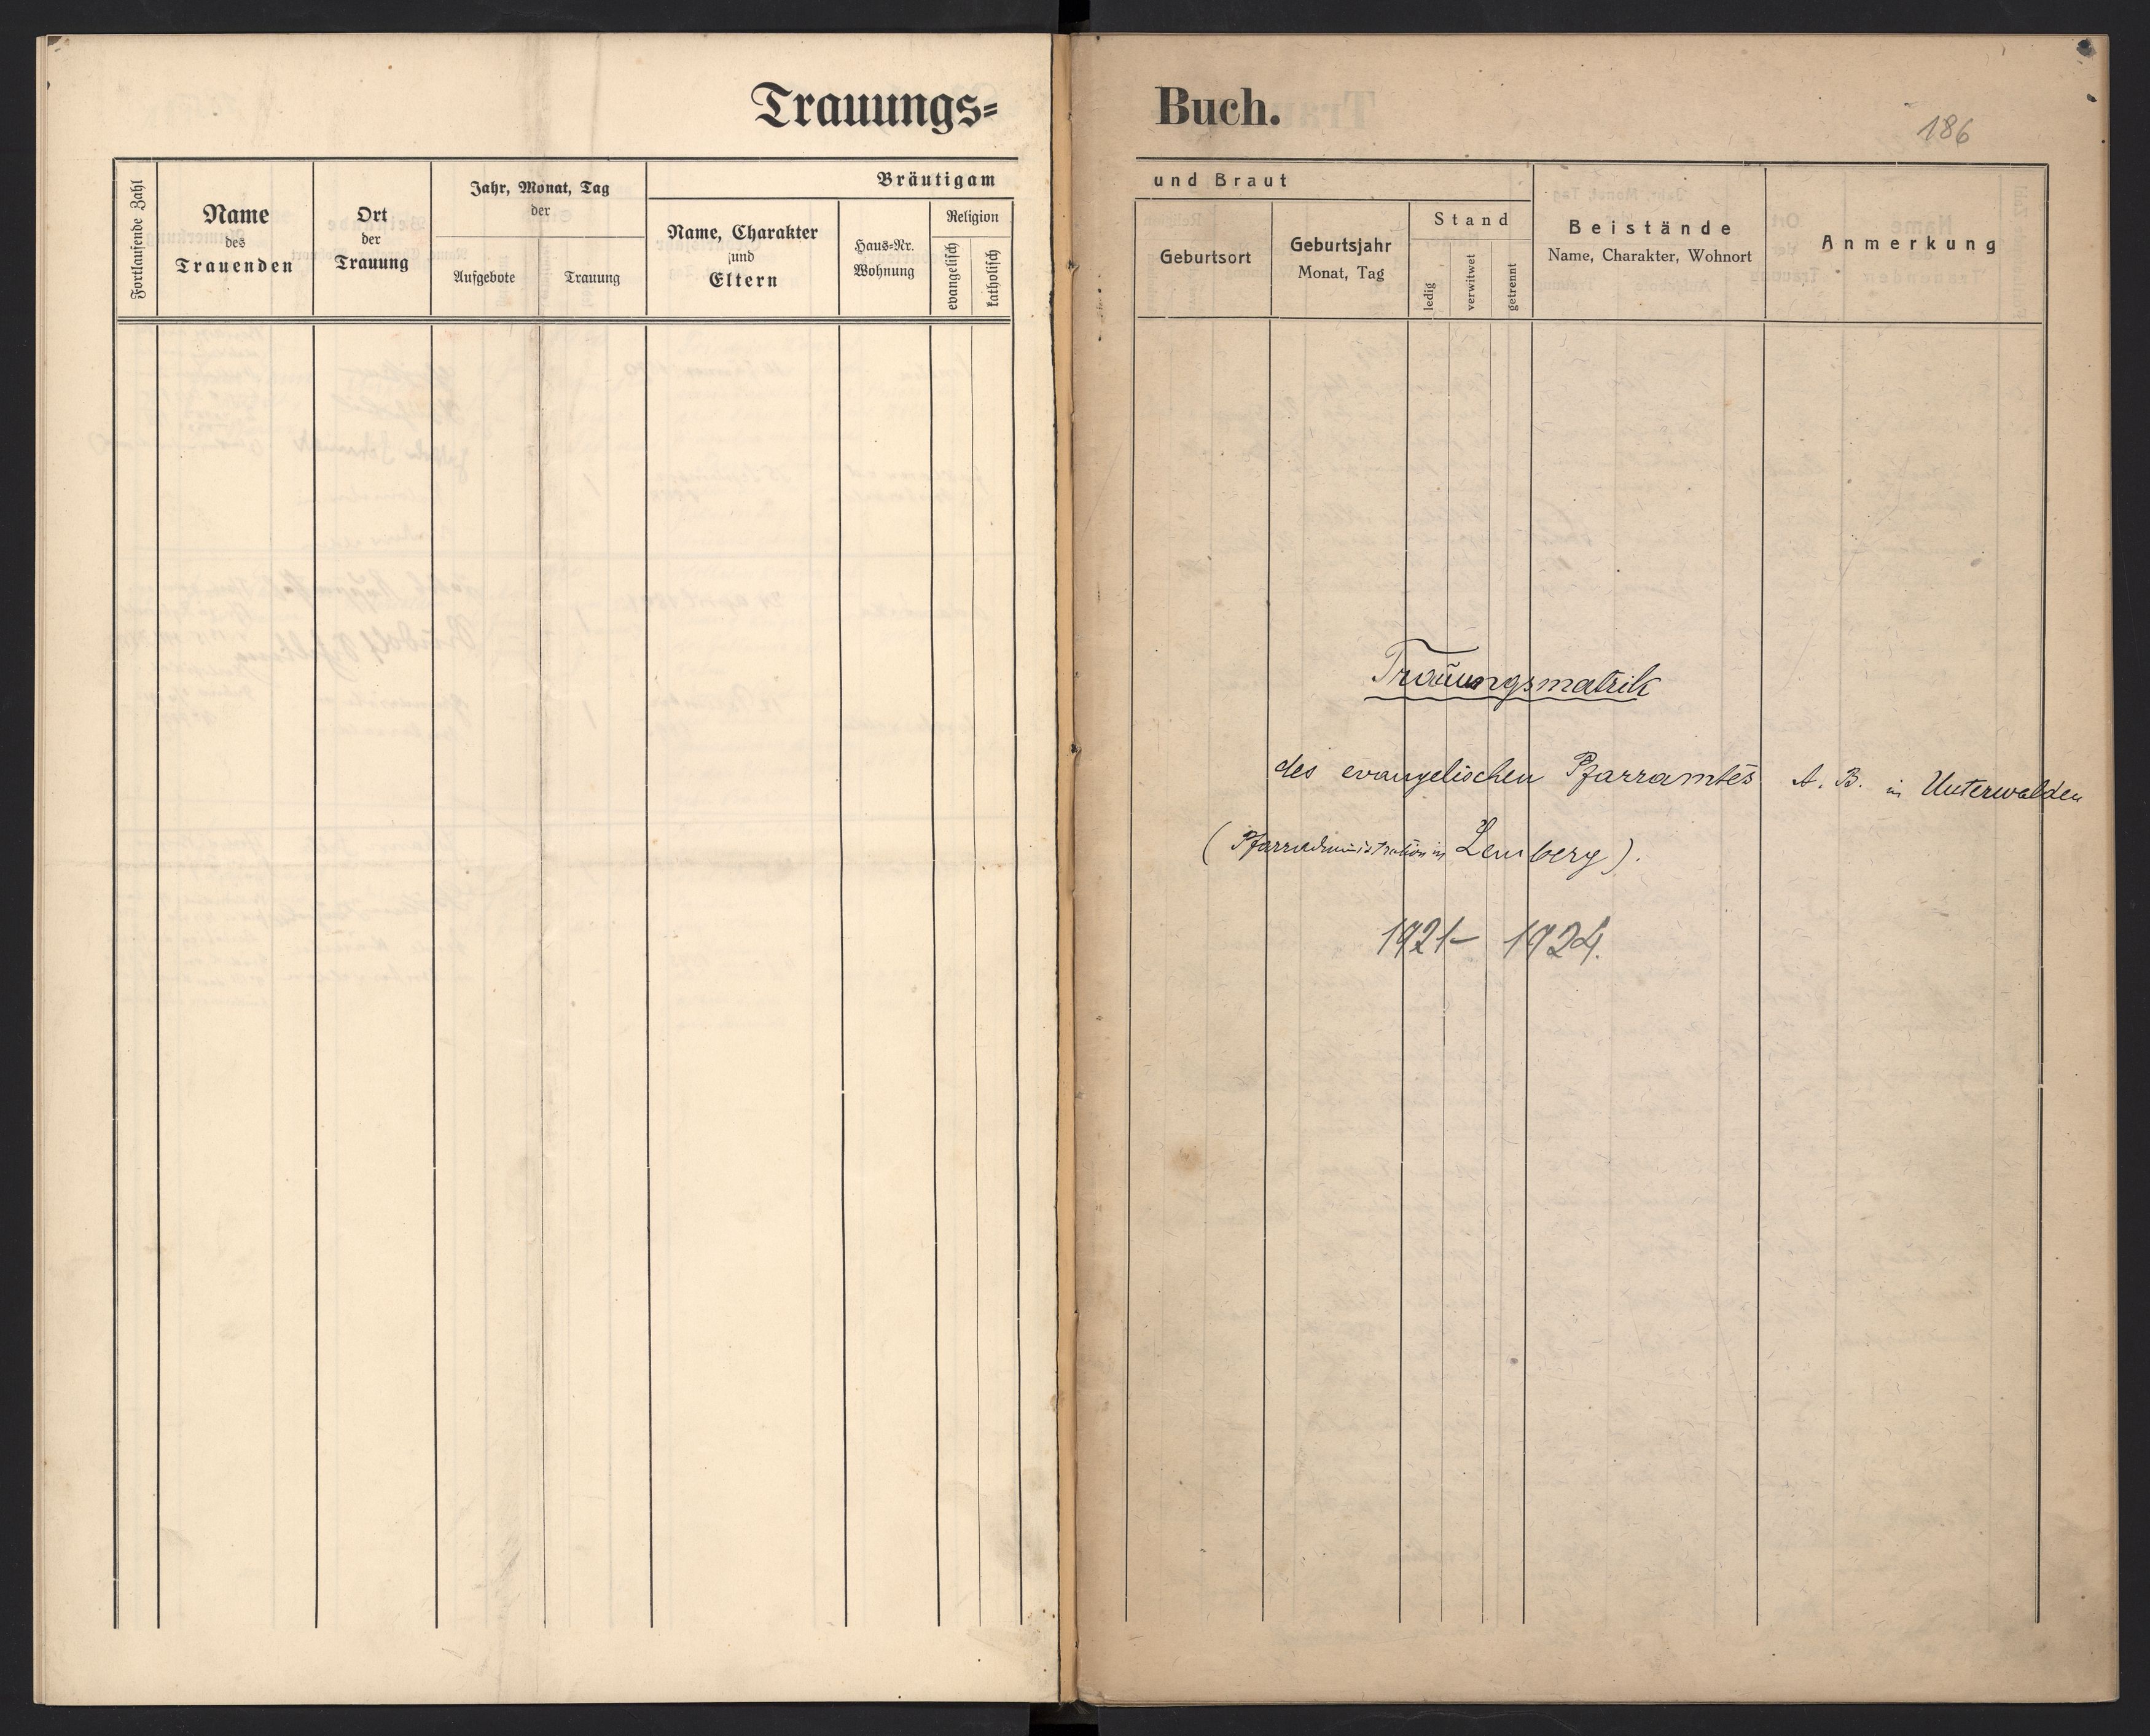 Trauungs=
Buch.
186
Fortlaufende Zahl
Name
des
Trauenden
Ort
der
Trauung
Jahr, Monat, Tag
der
Aufgebote
Trauung
Bräutigam
Name, Charakter
und
Eltern
Haus=Nr.
Wohnung
Religion
evangelisch
katholisch
und Braut
Geburtsort
Geburtsjahr
Monat, Tag
Stand
ledig
verwitwet
getrennt
Beistände
Name, Charakter, Wohnort
Anmerkung
Trauungsmatrik
des evangelischen Pfarramtes A. B. in Unterwalden
(Pfarradministration in Lemberg).
1921- 1924.